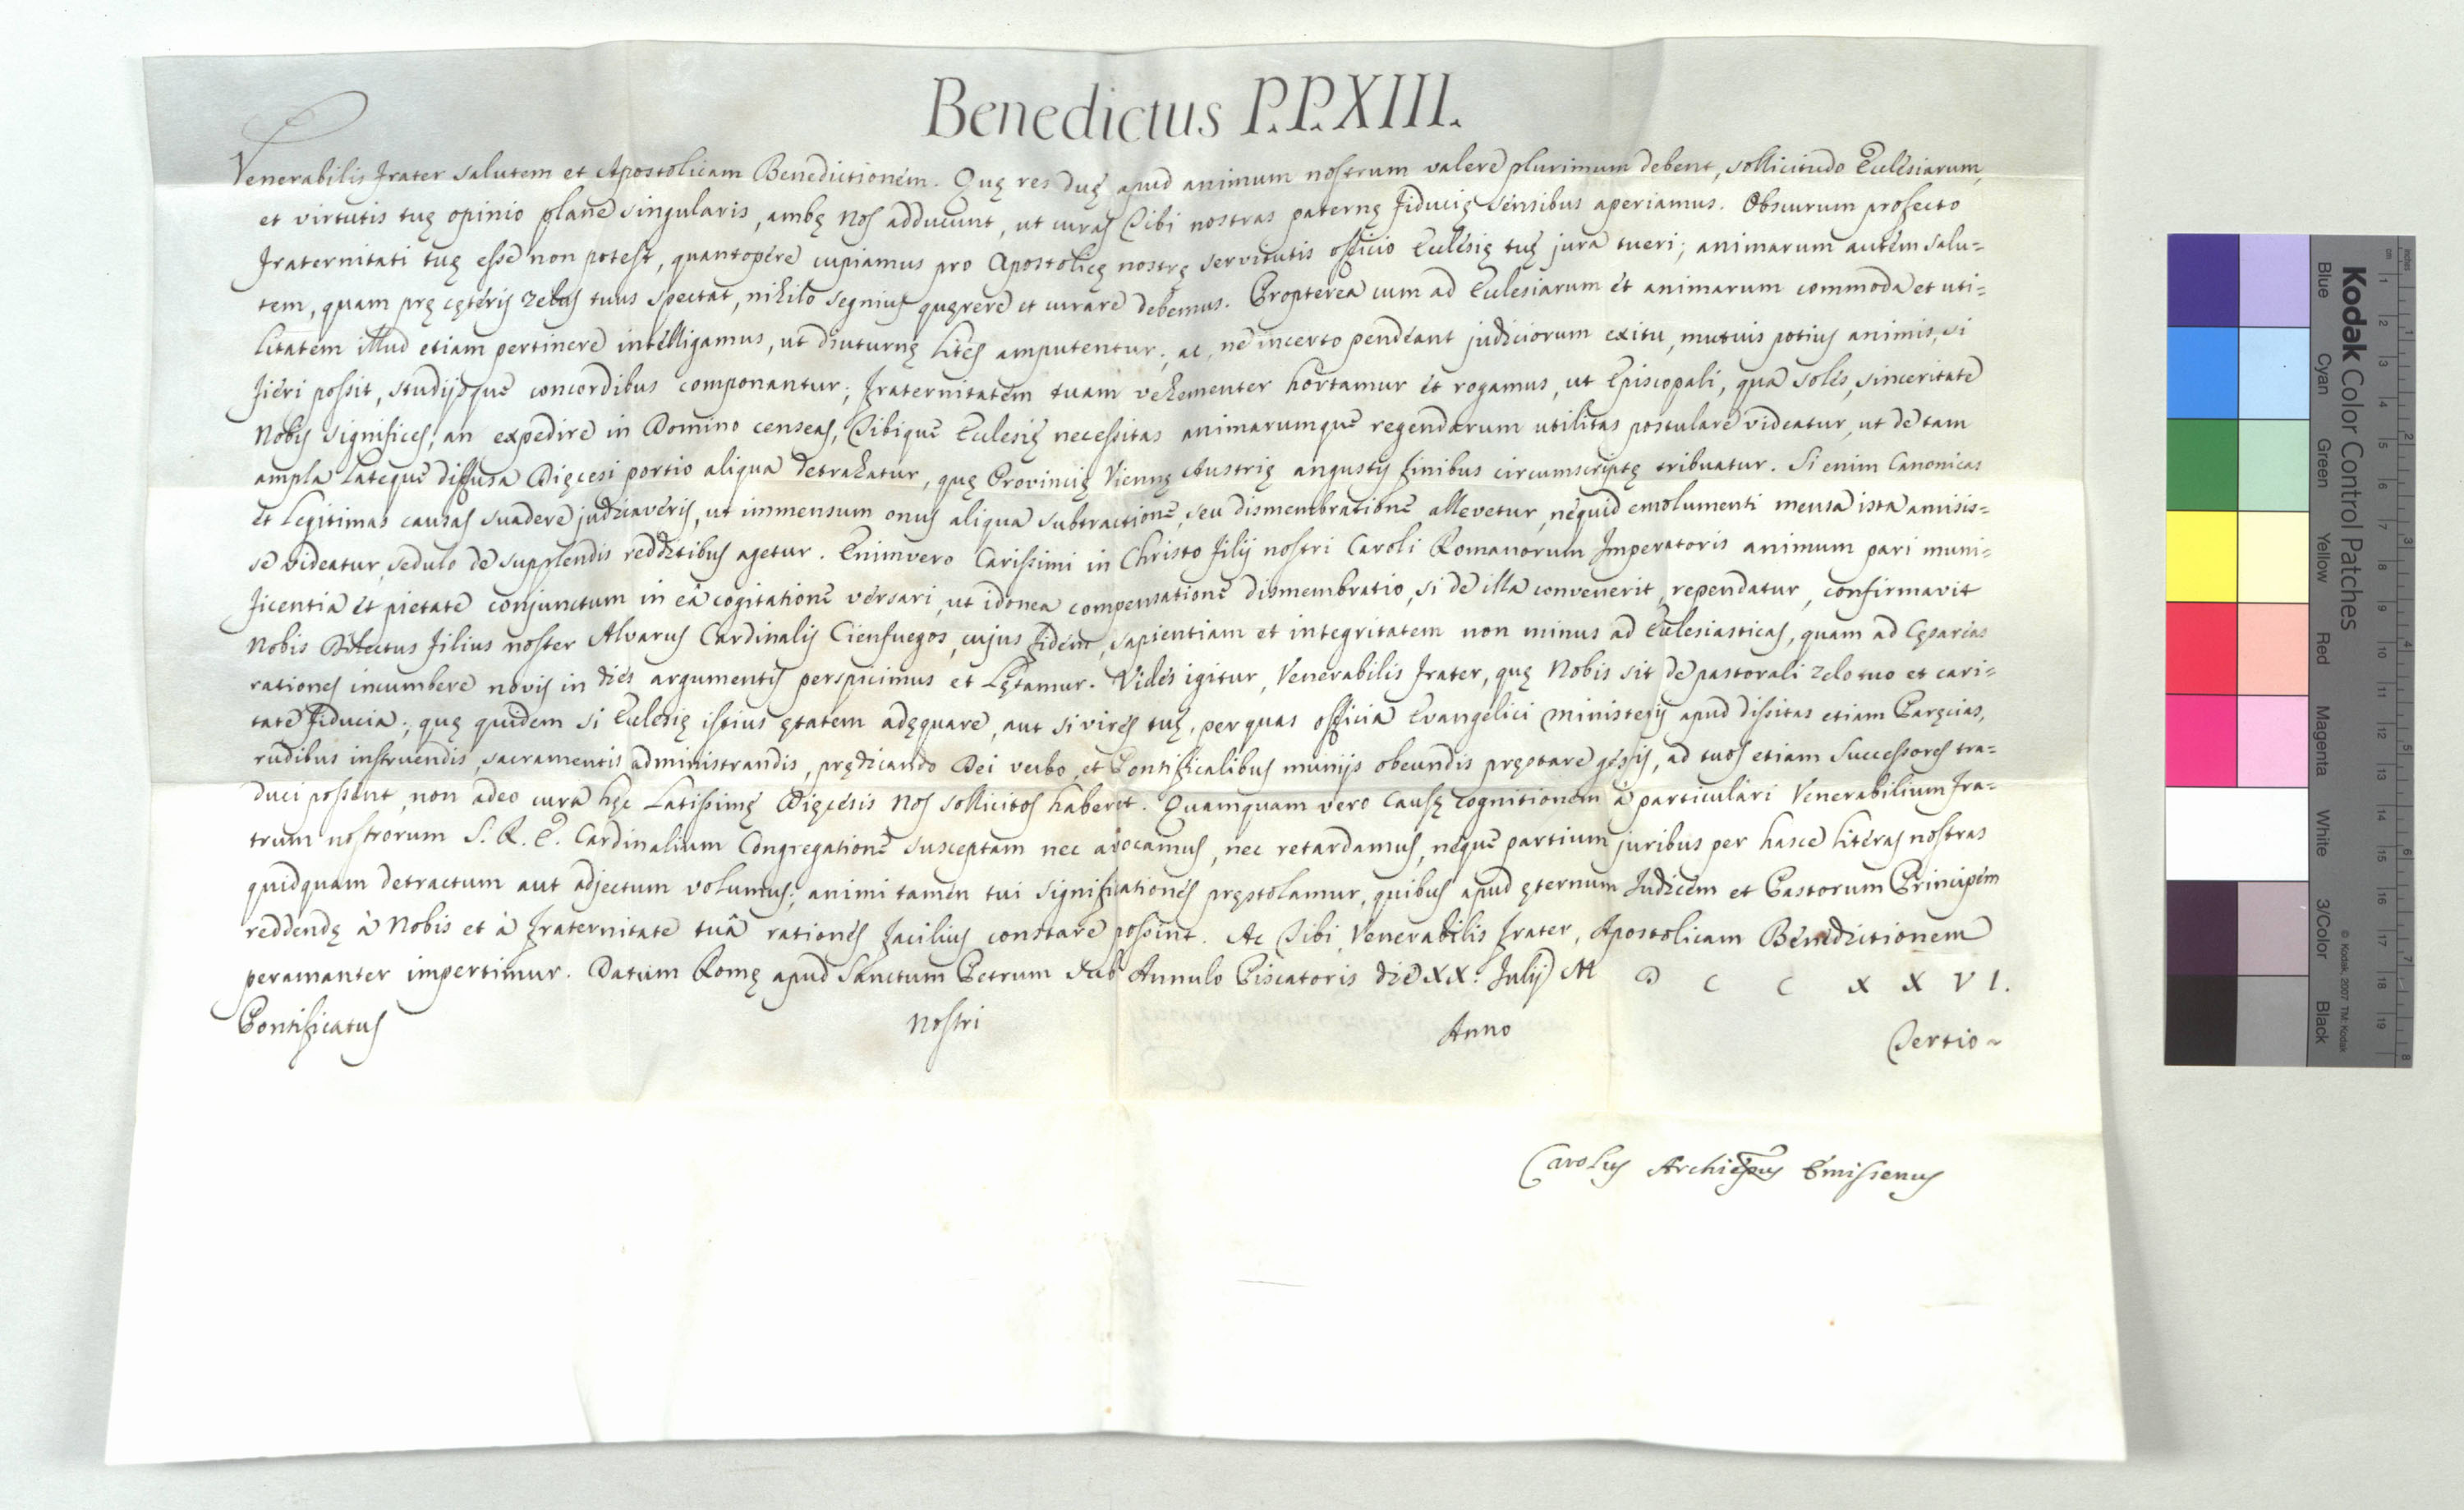 Benedictus P.P.XIII.
Venerabilis Frater salutem et Apostolicam Benedictionem. Quę res duę apud animum nostrum valere plurimum debent, sollicitudo Ecclesiarum,
et virtutis tuę opinio plane singularis, ambę Nos adducunt, ut curas Tibi nostras paternę fiducię sensibus aperiamus. Obscurum profecto
Fraternitati tuę esse non potest, quantopere cupiamus pro Apostolicę nostrę servitutis officio Ecclesię tuę jura tueri; animarum autem salu=
tem, quam prę cęteris zelus tuus spectat, nihilo segnius quęrere et curare debemus. Propterea cum ad Ecclesiarum et animarum commoda et uti=
litatem illud etiam pertinere intelligamus, ut diuturnę lites amputentur; ac, ne incerto pendeant judiciorum exitu, mutuis potius animis, si
fieri possit, studijsque concordibus componantur; Fraternitatem tuam vehementer hortamur et rogamus, ut Episcopali, qua soles, sinceritate
Nobis significes; an expedire in Domino censeas, Tibique Ecclesię necessitas animarumque regendarum utilitas postulare videatur, ut de tam
ampla lateque diffusa Dięcesi portio aliqua detrahatur, quę Provincię Viennę Austrię angustis finibus circumscriptę tribuatur. Si enim Canonicas
et legitimas causas suadere judicaveris, ut immensum onus aliqua subtractione, seu dismembratione allevetur, nequid emolumenti mensa ista amisis=
se videatur, sedulo de supplendis redditibus agetur. Enimvero Carissimi in Christo filij nostri Caroli Romanorum Imperatoris animum pari muni=
ficentia et pietate conjunctum in eâ cogitatione versari, ut idonea compensatione dismembratio, si de illa convenerit, rependatur, confirmavit
Nobis Dilectus filius noster Alvarus Cardinalis Cienfuegos, cujus fidem, sapientiam et integritatem non minus ad Ecclesiasticas, quam ad Cęsareas
rationes incumbere novis in dies argumentis perspicimus et lętamur. Vides igitur, Venerabilis Frater, quę Nobis sit de pastorali zelo tuo et cari=
tate fiducia; quę quidem si Ecclesię istius ętatem adęquare, aut si vires tuę, per quas officia Evangelici ministerij apud dissitas etiam Paręcias,
rudibus instruendis, sacramentis administrandis, prędicando Dei verbo, et Pontificalibus munijs obeundis pręstare gessis, ad tuos etiam successores tra=
duci possent, non adeo cura hęc latissimę Dięcesis Nos sollicitos haberet. Quamquam vero causę cognitionem à particulari Venerabilium Fra=
trum nostrorum S. R. E. Cardinalium Congregatione susceptam nec avocamus, nec retardamus, neque partium juribus per hasce literas nostras
quidquam detractum aut adjectum volumus; animi tamen tui significationes pręstolamur, quibus apud ęternum Judicem et Pastorum Principem
reddendę à Nobis et à Fraternitate tuâ rationes facilius constare possint. Ac Tibi, Venerabilis Frater, Apostolicam Benedictionem
peramanter impertimur. Datum Romę apud Sanctum Petrum sub Annulo Piscatoris die XX. Julij M D C C X X V I.
Pontificatus Nostri Anno Tertio~
Carolus Archiepus Emissenus
Kodak Color Control Patches
© Kodak, 2007 TM: Kodak
Blue Cyan Green Yellow Red Magenta White 3/Color Black
cm 1 2 3 4 5 6 7 8 9 10 11 12 13 14 15 16 17 18 19
inches 1 2 3 4 5 6 7 8